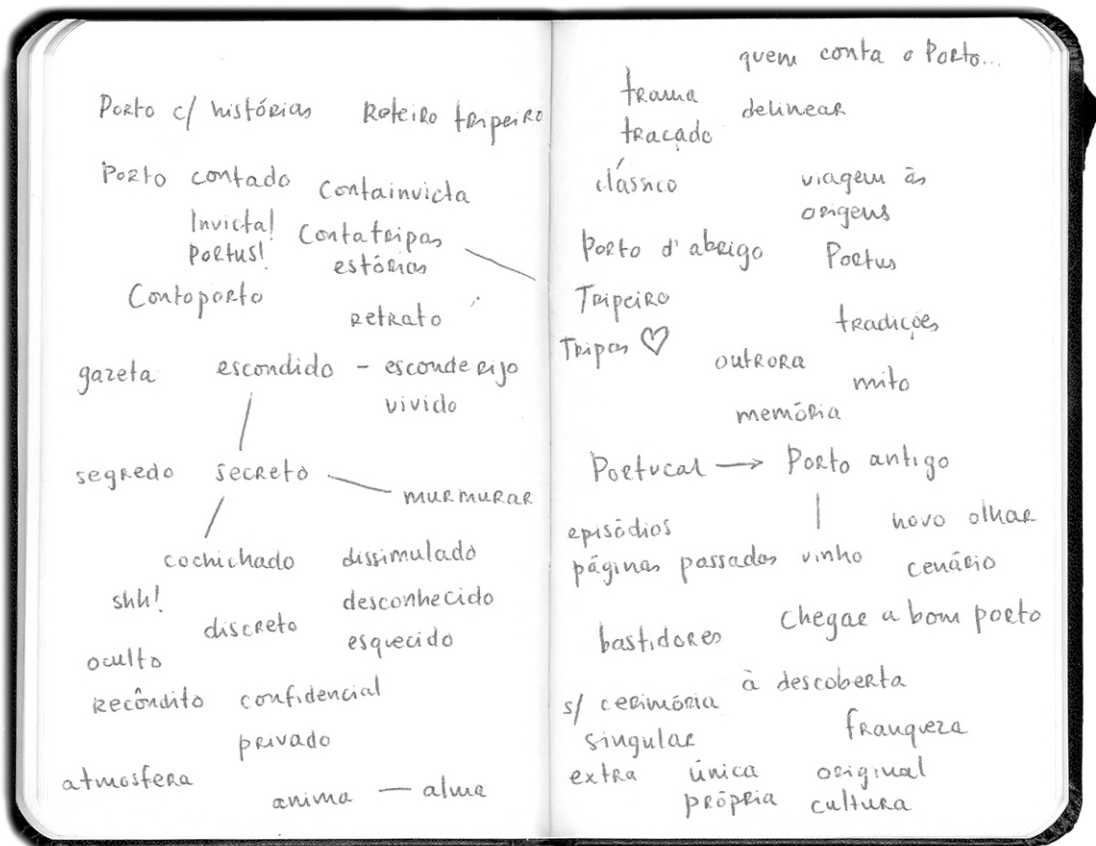 Porto c/ histórias
Roteiro tripeiro
Porto contado
Containvicta
Invicta!
Portus!
Contatripas
estórias
Contoporto
retrato
gazeta
escondido – esconderijo
vivido
segredo
secreto
murmurar
cochichado
dissimulado
shh!
desconhecido
discreto
esquecido
oculto
recôndito
confidencial
privado
atmosfera
anima — alma
quem conta o Porto...
trama
delinear
traçado
clássico
viagem às
origens
Porto d'abrigo
Portus
Tripeiro
tradições
Tripas ♡
outrora
mito
memória
Portucal → Porto antigo
episódios
novo olhar
páginas passadas
vinho
cenário
bastidores
Chegar a bom porto
à descoberta
s/ cerimónia
singular
franqueza
extra
única
original
própria
cultura